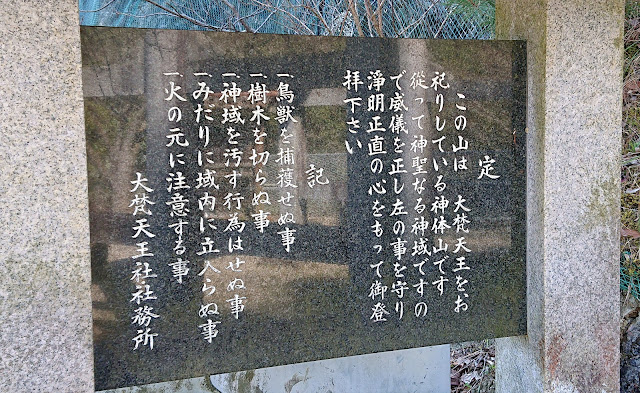 定
この山は　大梵天王をお
祀りしている神体山です
従って神聖なる神域ですの
で威儀を正し左の事を守り
淨明正直の心をもって御登
拝下さい
記
一鳥獣を捕獲せぬ事
一樹木を切らぬ事
一神域を汚す行為はせぬ事
一みだりに域内に立入らぬ事
一火の元に注意する事
大梵天王社社務所